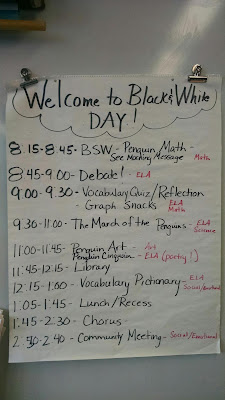 Welcome to Black & White
DAY!
8:15-8:45- BSW - Penguin Math -
See Morning Message Math
8:45-9:00- Debate! - ELA
9:00-9:30- Vocabulary Quiz/Reflection ELA
- Graph Snacks Math
9:30-11:00- The March of the Penguins - ELA
Science
11:00-11:45- Penguin Art - Art
Penguin Cinquain - ELA (poetry!)
11:45-12:15- Library
12:15-1:00- Vocabulary Pictionary - ELA
Social/Emotional
1:05-1:45- Lunch/Recess
1:45-2:30- Chorus
2:30-2:40- Community Meeting - Social/Emotional